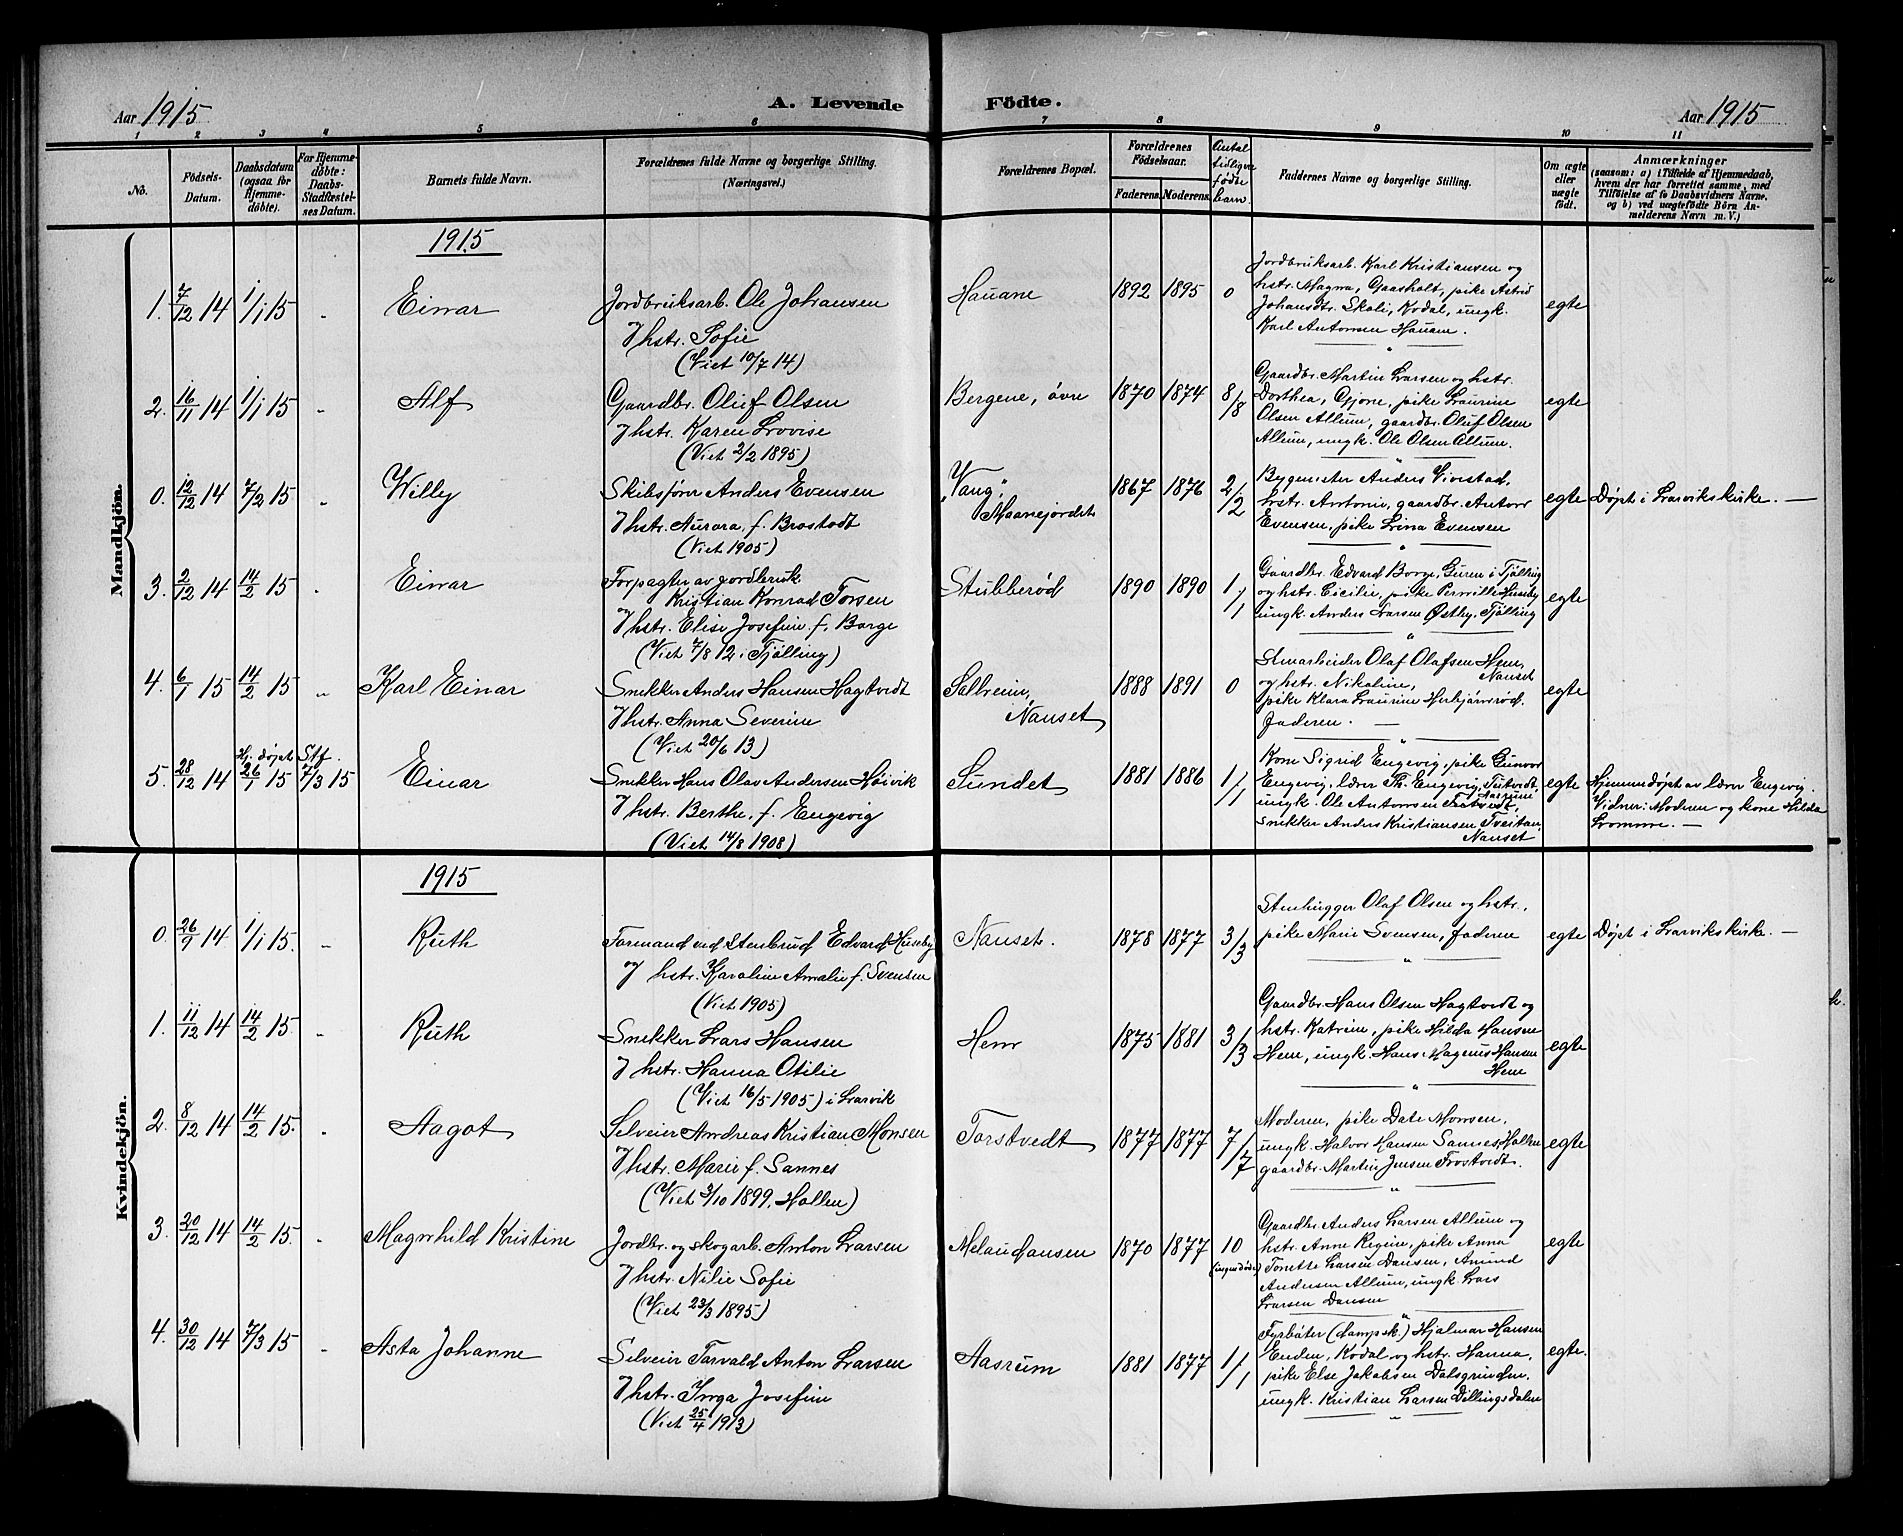 Aar 1915
A. Levende Födte.
Aar 1915
1 2 3 4 5 6 7 8 9 10 11
No.
Födsels-Datum.
Daabsdatum (ogsaa for Hjemme-döbte).
For Hjemme-döbte: Daabs-Stadfæstel-ses Datum.
Barnets fulde Navn.
Forældrenes fulde Navne og borgerlige Stilling.
(Næringsvei.)
Forældrenes Bopæl.
Forældrenes Födselsaar.
Faderens. Moderens.
Antal tidligere födte barn.
Faddernes Navne og borgerlige Stilling.
Om ægte eller uægte födt.
Anmærkninger
(saasom: a) i Tilfælde af Hjemmedaab,
hvem der har forrettet samme, med
Tilföielse af to Daabsvidners Navne,
og b) ved uægtefödte Börn An-
melderens Navn m. V.)
Mandkjön.
1915
1. 7/12 14 1/1 15 " Einar
Jordbruksarb. Ole Johansen
& hstr. Sofie
(Viet 10/7 14)
Hauane 1892 1895 0
Jordbruksarb. Karl Kristiansen og
hstr. Magna, Gaasholt, pike Astrid
Johansdtr. Skoli, Kodal, ungk.
Karl Antonsen Hauane.
egte
2. 16/11 14 1/1 15 " Alf
Gaardbr. Oluf Olsen
& hstr. Karen Lovise
(Viet 2/2 1895)
Bergene, øvre 1870 1874 8/8
Gaardbr. Martin Larsen og hstr.
Dorthea, Gjone, pike Laurine
Olsen Allum, gaardbr. Oluf Olsen
Allum, ungk. Ole Olsen Allum.
egte
0. 12/12 14 7/2 15 " Willy
Skibsfører Anders Evensen
& hstr. Aurora, f. Brastadt
(Viet 1905)
"Vang",
Maanejordet
1867 1876 2/2
Bygmester Anders Virstad,
hstr. Antonie, gaardbr. Anton
Evensen, pike Lina Evensen
egte Døpt i Larviks kirke. —
3. 2/12 14 14/2 15 " Einar
Forpagter av jordbruk
Kristian Konrad Torsen
& hstr. Elise Josefine f. Borge
(Viet 7/8 12 i Tjølling)
Stubberød 1890 1890 1/1
Gaardbr. Edvard Borge, Guren i Tjølling
og hstr. Cicilie, pike Pernille Huseby
ungk. Anders Larsen Østby, Tjølling
egte
4. 6/1 15 14/2 15 " Karl Einar
Snekker Anders Hansen Hagtvedt
& hstr. Anna Severine
(Viet 20/6 13)
Solheim,
Nanset
1888 1891 0
Stenarbeider Olaf Olafsen Hem,
Nanset
og hstr. Nikoline,
pike Klara Laurine Herbjørnsrød.
Faderen. —
egte
5. 28/12 14 Hj. døpt 26/1 15 Stf. 7/3 15 Einar
Snekker Hans Olav Andersen Høivik
& hstr. Berthe, f. Engevig
(Viet 14/8 1908)
Sundet 1881 1886 1/1
Kone Sigrid Engevig, pike Gunvor
Engevig, lærer Th. Engevig, Tutvedt,
ungk. Ole Antonsen Aasrum
snekker Anders Kristiansen Tveitan,
Nanset
egte
Hjemmedøpt av lærer Engevig.
Vidner: Moderen og kone Hilda
Lomme. —
Kvindekjön.
1915
0. 26/9 14 1/1 15. " Ruth
Formand ved Stenbrud Edvard Huseby
og hstr. Karoline Amalie f. Svensen
(Viet 1905)
Nanset. 1878 1877 3/3
Stenhugger Olaf Olsen og hstr.,
pike Marie Svensen, faderen
egte Døpt i Larviks kirke. —
1. 11/12 14 14/2 15. " Ruth
Snekker Lars Hansen
& hstr. Hanna Otilie
(Viet 16/5 1905) i Larvik
Hem 1875 1881 3/3
Gaardbr. Hans Olsen Hagtvedt og
hstr. Katrine, pike Hilda Hansen
Hem, ungk. Hans Magnus Hansen
Hem
egte
2. 8/12 14 14/2 15. " Aagot
Selveier Andreas Kristian Monsen
& hstr. Marie f. Sannes
(Viet 3/10 1899, Hollen)
Torstvedt 1877 1877 7/7
Moderen, pike Date Monsen,
ungk. Halvor Hansen Sannes, Hollen
gaardbr. Martin Jensen Torstvedt.
egte
3. 20/12 14 14/2 15. " Magnhild Kristine
Jordbr. og skogarb. Anton Larsen
& hstr. Nilie Sofie
(Viet 23/3 1895)
Melaudansen 1870 1877 10
(ingen døde)
Gaardbr. Anders Larsen Allum og
hstr. Anne Regine, pike Anna
Tonette Larsen Dansen, Amund
Andersen Allum, ungk. Lars
Larsen Dansen
egte
4. 30/12 14 7/3 15 " Asta Johanne
Selveier Torvald Anton Larsen
& hstr. Inga Josefine
(Viet 25/4 1913)
Aasrum 1881 1877 1/1
Fyrbøter (dampsk.) Hjalmar Hansen
Enden, Kodal og hstr. Hanna,
pike Else Jakobsen Dalsgrinden,
ungk. Kristian Larsen Dillingsdalen
egte.